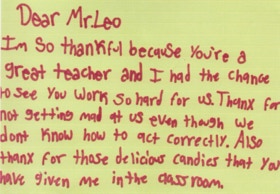 Dear Mr.Leo
Im So thankful because you're a
great teacher and I had the chance
to see you work so hard for us. Thanx for
not getting mad at us even though we
dont know how to act correctly. Also
thanx for those delicious candies that you
have given me in the classroom.